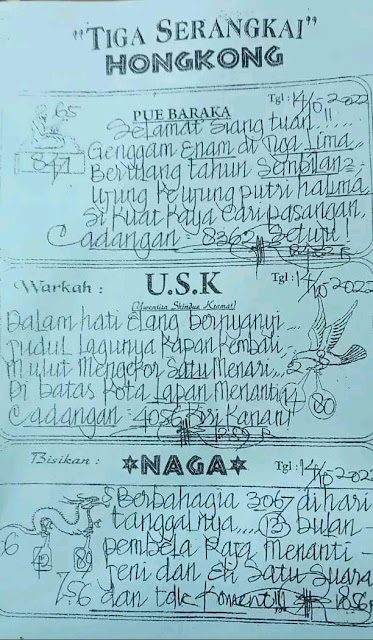 "TIGA SERANGKAI"
HONGKONG
PUE BARAKA
Tgl : 14/10 2022
65
847
Selamat siang tuan !!
Genggam enam di tiga lima
Berulang tahun sembilan
Ujung ke ujung putri halima
Si kuat kaya cari pasangan
Cadangan = 8362 Setuju!
Warkah :
U.S.K
Tgl : 14/10 2022
Dalam hati elang bernyanyi...
Judul lagunya kapan kembali
Mulut mengekor satu menari...
Di batas kota lapan menanti
Cadangan = 4056 Kiri Kanan!
Bisikan :
NAGA
Tgl : 14/10 2022
Berbahagia 3067 di hari
tanggalnya.... bulan
pembela kata menanti
Feni dan Eti satu suara
756 dan tak komentl!!